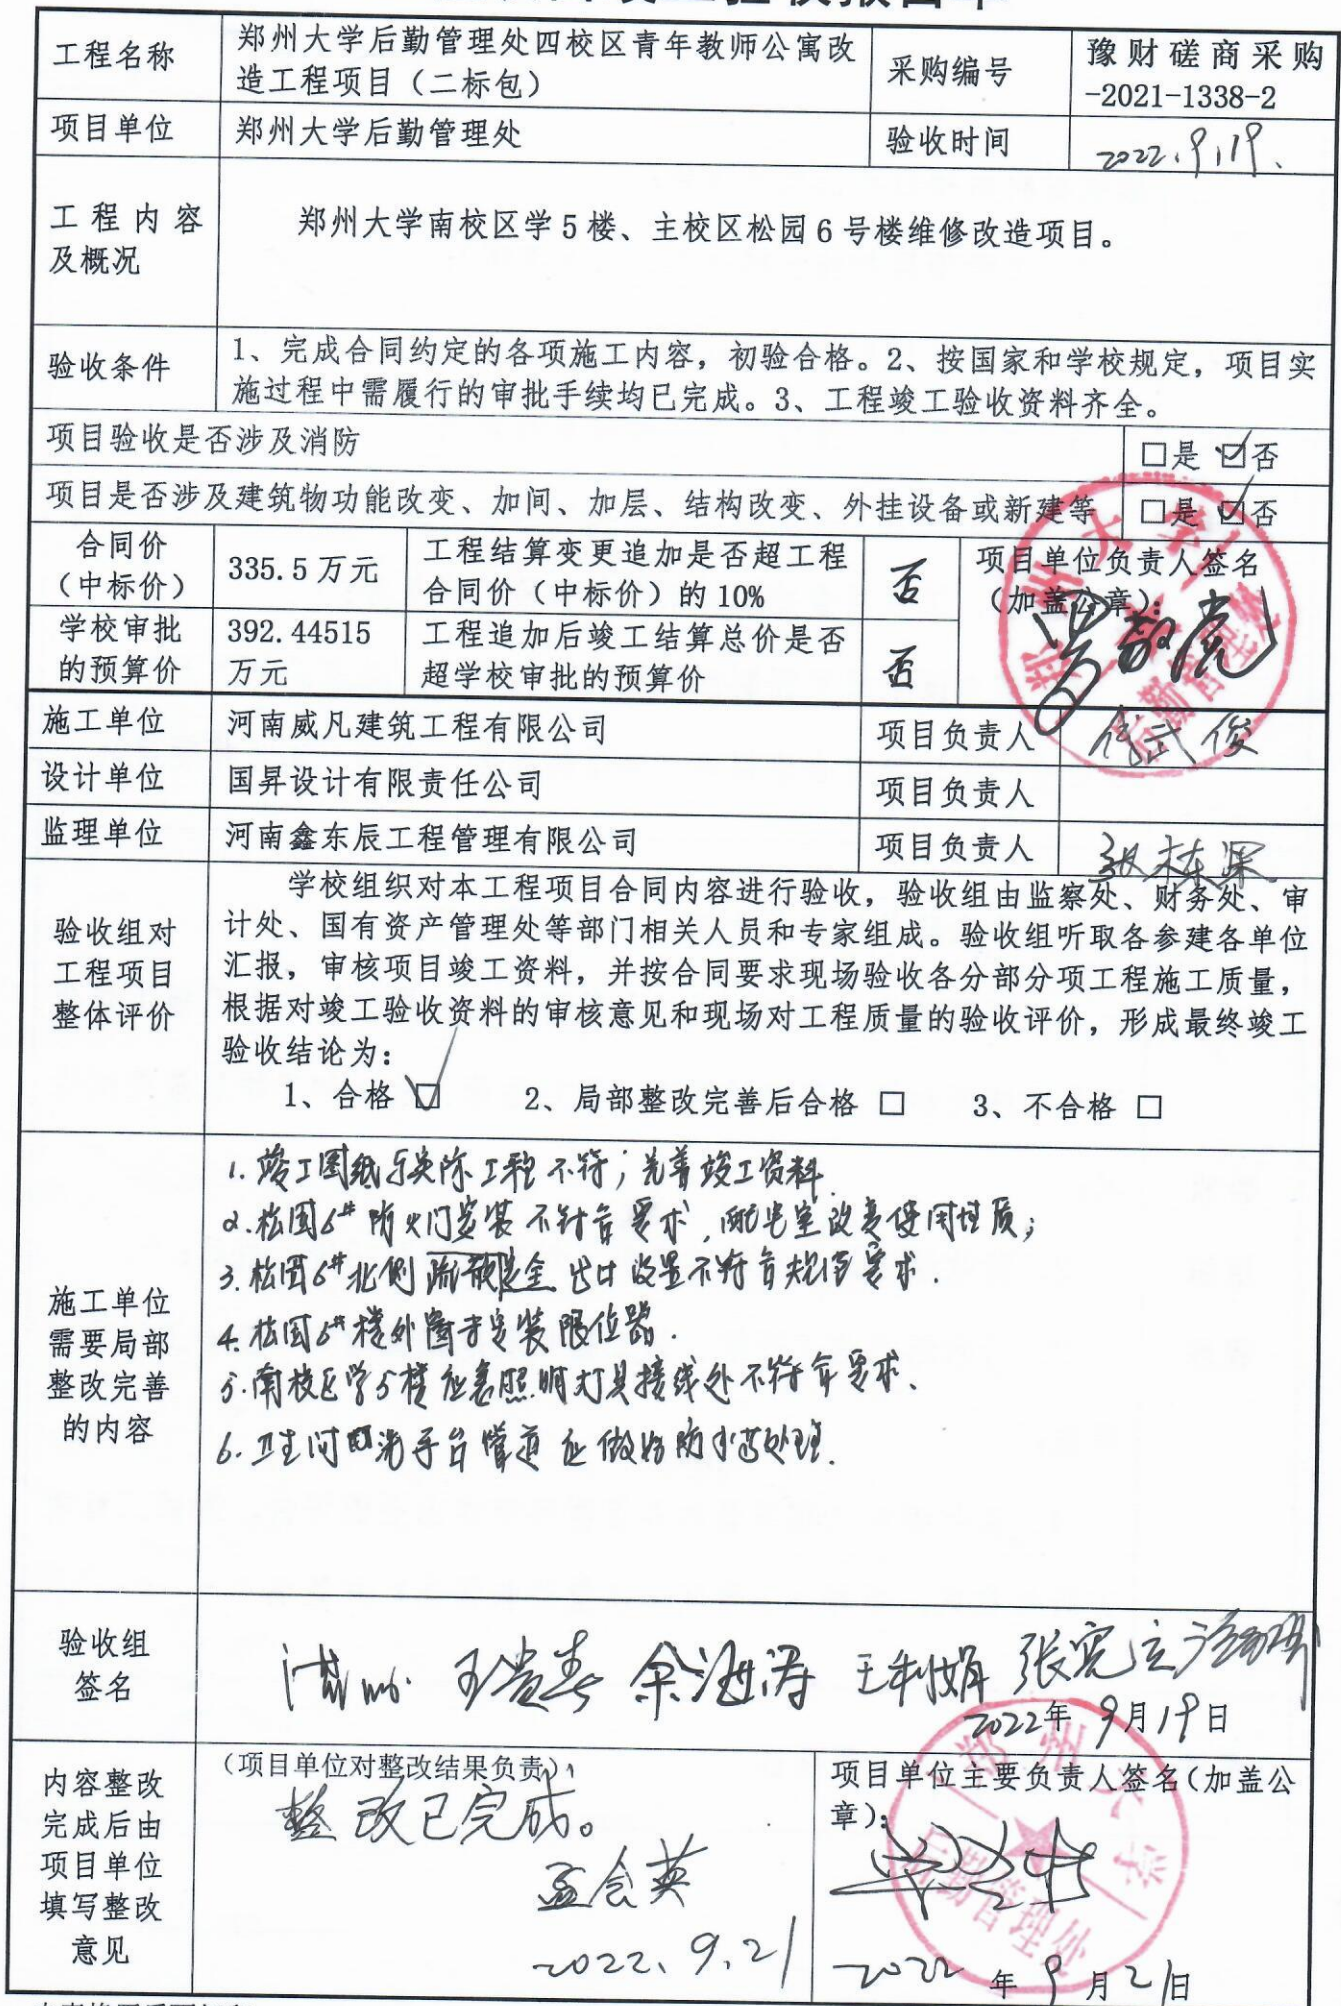 工程名称
郑州大学后勤管理处四校区青年教师公寓改
造工程项目（二标包）
采购编号
豫财磋商采购
-2021-1338-2
项目单位
郑州大学后勤管理处
验收时间
2022.9.19.
工程内容
及概况
郑州大学南校区学5楼、主校区松园6号楼维修改造项目。
验收条件
1、完成合同约定的各项施工内容，初验合格。2、按国家和学校规定，项目实
施过程中需履行的审批手续均已完成。3、工程竣工验收资料齐全。
项目验收是否涉及消防
□是 ☑否
项目是否涉及建筑物功能改变、加间、加层、结构改变、外挂设备或新建等
□是 ☑否
合同价
（中标价）
335.5万元
工程结算变更追加是否超工程
合同价（中标价）的10%
否
项目单位负责人签名
（加盖公章）：
学校审批
的预算价
392.44515
万元
工程追加后竣工结算总价是否
超学校审批的预算价
否
施工单位
河南威凡建筑工程有限公司
项目负责人
设计单位
国昇设计有限责任公司
项目负责人
监理单位
河南鑫东辰工程管理有限公司
项目负责人
验收组对
工程项目
整体评价
学校组织对本工程项目合同内容进行验收，验收组由监察处、财务处、审
计处、国有资产管理处等部门相关人员和专家组成。验收组听取各参建各单位
汇报，审核项目竣工资料，并按合同要求现场验收各分部分项工程施工质量，
根据对竣工验收资料的审核意见和现场对工程质量的验收评价，形成最终竣工
验收结论为：
1、合格 ☑ 2、局部整改完善后合格 □ 3、不合格 □
施工单位
需要局部
整改完善
的内容
1.竣工图纸与实际工程不符；完善竣工资料.
2.松园6#防火门安装不符合要求，配电室改变使用性质；
3.松园6#北侧疏散安全出口设置不符合规范要求.
4.松园6#楼外窗未安装限位器.
5.南校区学5楼应急照明灯具接线处不符合要求、
6.卫生间洗手台管道应做好防水处理.
验收组
签名
王贵春 余海涛 王利娟 张宪立
2022年9月19日
内容整改
完成后由
项目单位
填写整改
意见
（项目单位对整改结果负责）
整改已完成。
孟会英
2022.9.21
项目单位主要负责人签名（加盖公
章）：
郑州大学
后勤管理处
2022年9月21日